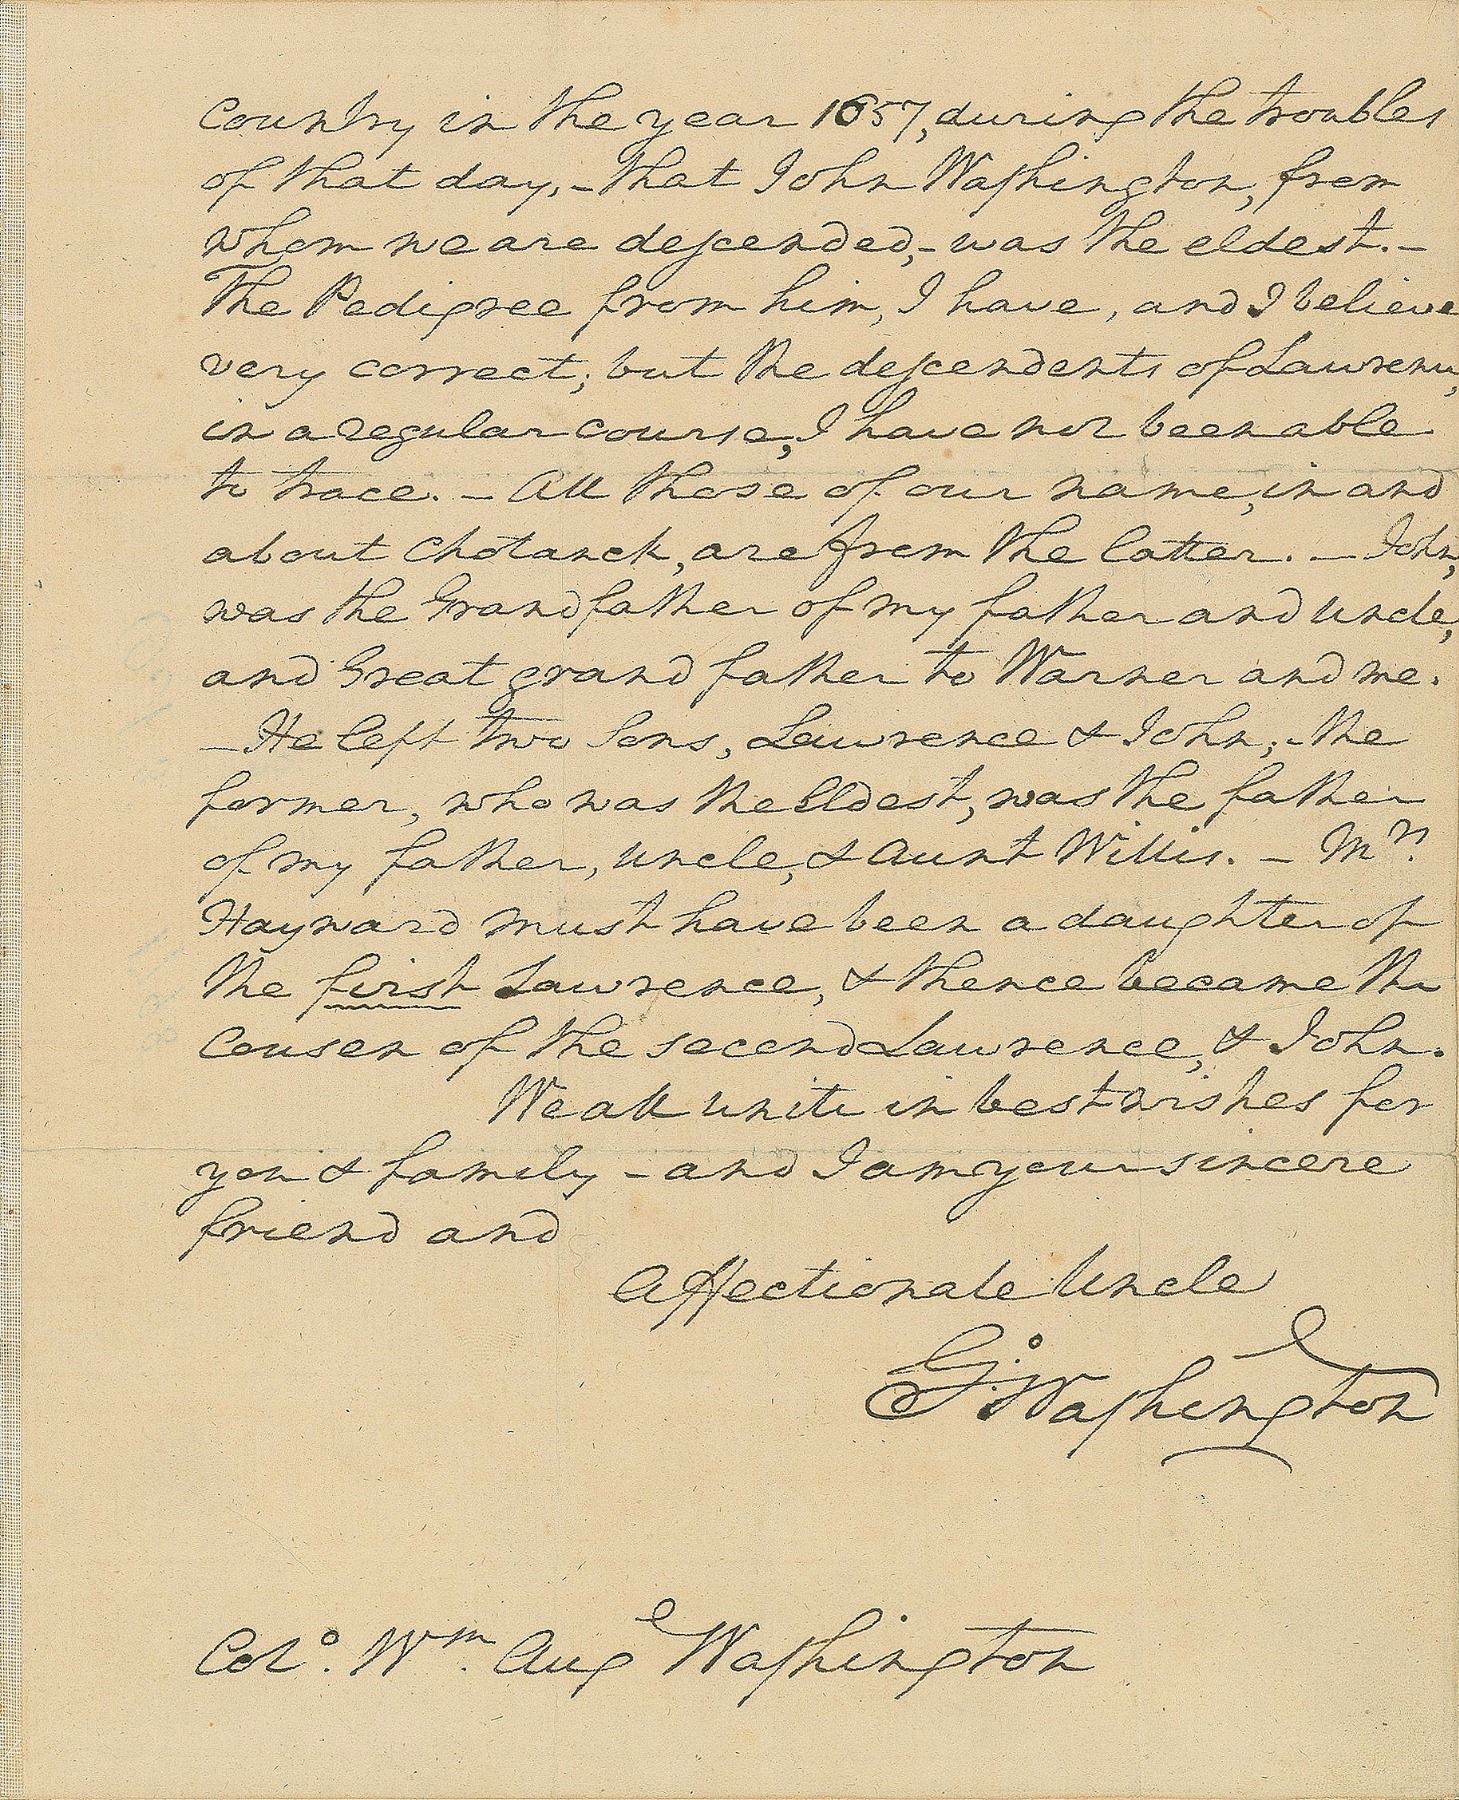 Country in the year 1657, during the troubles
of that day, - that John Washington, from
whom we are descended, - was the eldest. -
The Pedigree from him, I have, and I believe
very correct; but the descendents of Lawrence,
in a regular course, I have not been able
to trace. - All those of our name, in and
about Chotanck, are from the latter. - John,
was the Grandfather of my father and Uncle,
and Great grand father to Warner and me.
- He left two Sons, Lawrence & John; - the
former, who was the Eldest, was the father
of my father, Uncle, & Aunt Willis. - Mrs.
Hayward must have been a daughter of
the first Lawrence, & thence became the
Cousen of the second Lawrence, & John.
We all unite in best wishes for
you & family - and I am your sincere
friend and
Affectionate Uncle
Go: Washington
Colo. Wm. Aug Washington